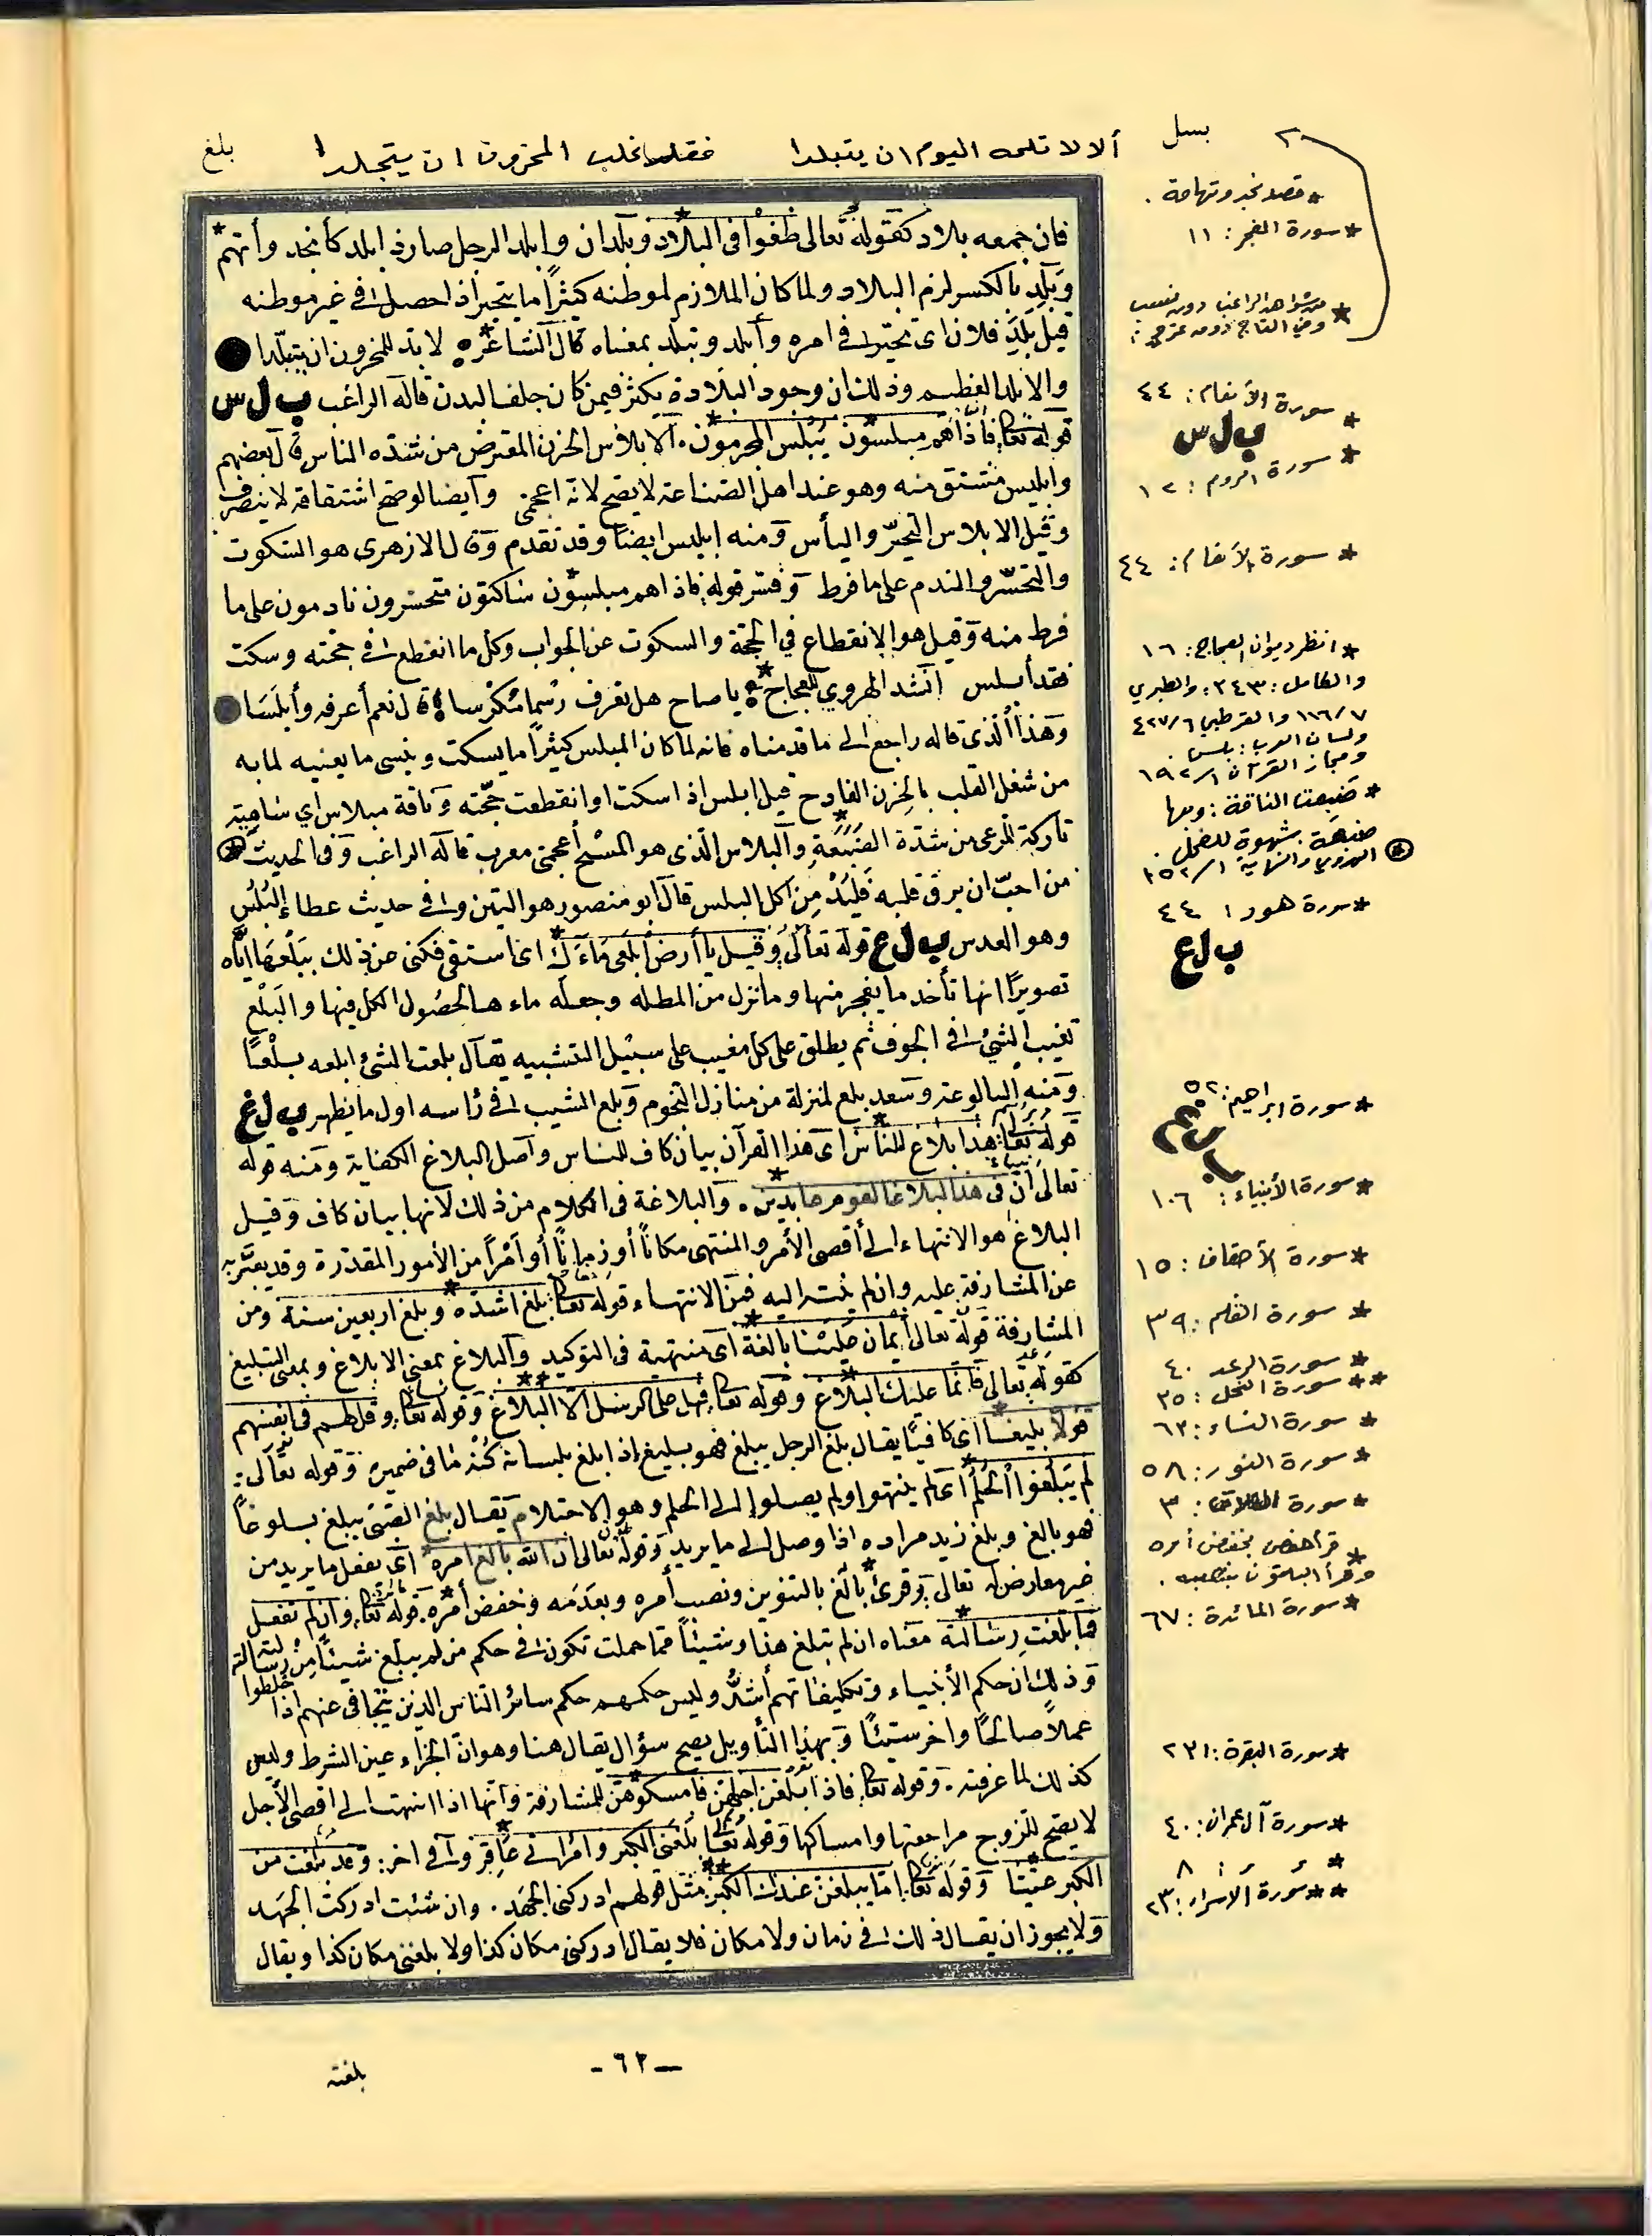 بسل
ألا لا تلمه اليوم ان يتبلدا فقد غلب المحزون ان يتجلدا
بلغ
فان جمعه بلاد كقوله تعالى طغوا في البلاد وبلدان وابلد الرجل صار ذا بلد كأنجد وأتهم *
وبلد بالكسر لزم البلاد ولما كان الملازم لموطنه كثيراً ما يتحير اذا حصل في غير موطنه
قيل بلد فلان اى تحير في امره وأبلد وتبلد بمعناه قال الشاعر * لا بد للمحزون ان يتبلدا
والابلد العظيم وذلك ان وجود البلادة يكثر فيمن كان جلف البدن قاله الراغب ب ل س
قوله تعالى فاذا هم مبلسون يبلس المجرمون . الابلاس الحزن المعترض من شدة الناس قال بعضهم
وابليس مشتق منه وهو عند اهل الصناعة لا يصح لانه اعجمى وأيضا لو صح اشتقاقه لا ينصرف
وقيل الابلاس التحير واليأس ومنه ابليس ايضا وقد تقدم وقال الازهرى هو السكوت
والتحسر والندم على ما فرط وفسر قوله فاذا هم مبلسون ساكتون متحسرون نادمون على ما
فرط منه وقيل هو الانقطاع في الحجة والسكوت عن الجواب وكل ما انقطع في حجته وسكت
فقد أبلس أنشد الهروي للعجاج * يا صاح هل تعرف رسما مكرسا * قال نعم أعرفه وأبلسا
وهذا الذى قاله راجع الى ما قدمناه فانه لما كان المبلس كثيراً ما يسكت وينسى ما يعنيه لما به
من شغل القلب بالحزن الفادح قيل ابلس اذا سكت او انقطعت حجته وناقة مبلاس اي
تاركة للرعى من شدة الضبعة والبلاس الذى هو المسح أعجمى معرب قاله الراغب وفى الحديث
من احب ان يرق قلبه فليدمن اكل البلس قال أبو منصور هو التين وفي حديث عطاء البلس
وهو العدس ب ل ع قوله تعالى وقيل يا أرض ابلعى ماءك اى استقى فكنى عن ذلك ببلعها اياه
تصويرًا انها تأخذ ما يفجر منها وما نزل من المطلة وجعله ماءها لحصول الكل فيها والبلع
تغيب الشئ في الجوف ثم يطلق على كل مغيب على سبيل التشبيه يقال بلعت الشئ ابلعه بلعاً
ومنه البالوعة وسعد بلع لمنزلة من منازل النجوم وبلع الشيب في رأسه اول ما يظهر ب ل غ
قوله تعالى هذا بلاغ للناس اى هذا القرآن بيان كاف للناس واصل البلاغ الكفاية ومنه قوله
تعالى ان فى هذا لبلاغا لقوم عابدين . والبلاغة فى الكلام من ذلك لانها بيان كاف وقيل
البلاغ هو الانتهاء الى أقصى الأمر والمنتهى مكاناً أو زماناً أو أمراً من الأمور المقدرة وقد يعبر به
عن المشارفة عليه وان لم ينته اليه فمن الانتهاء قوله تعالى بلغ اشده وبلغ اربعين سنة ومن
المشارفة قوله تعالى أيمان علينا بالغة اى منتهية فى التوكيد والبلاغ بمعنى الابلاغ وبمعنى التبليغ
كقوله تعالى فانما عليك البلاغ وقوله تعالى فهل على الرسل الا البلاغ وقوله تعالى وقل لهم فى انفسهم
قولا بليغا اى كافيا يقال بلغ الرجل يبلغ فهو بليغ اذا ابلغ بلسانه كنه ما فى ضميره وقوله تعالى :
لم يبلغوا الحلم اى لم ينتهوا ولم يصلوا الى الحلم وهو الاحتلام يقال بلغ الصبى يبلغ بلوغاً
فهو بالغ وبلغ زيد مراده اذا وصل الى ما يريد وقوله تعالى ان الله بالغ امره اى يفعل ما يريد من
غير معارض له تعالى وقرئ بالغ بالتنوين ونصب أمره وبعدمه وخفض أمره . قوله تعالى وان لم تفعل
فما بلغت رسالته معناه ان لم تبلغ هذا وشيئاً مما حملت تكون في حكم من لم يبلغ شيئاً من رسالته
وذلك ان حكم الأنبياء وتكليفاتهم أشد وليس حكمهم حكم سائر الناس الذين يتجافى عنهم اذا خلطوا
عملاً صالحًا وآخر سيئًا وبهذا التأويل يصح سؤال يقال هنا وهو ان الجزاء عين الشرط وليس
كذلك لما عرفته . وقوله تعالى فاذا بلغن اجلهن فامسكوهن للمشارفة وانها اذا انتهت الى اقصى الأجل
لا يصح للزوج مراجعتها وامساكها وقوله تعالى بلغنى الكبر وامرأتى عاقر وفي آخر : وقد بلغت من
الكبر عتيا وقوله تعالى اما يبلغن عندك الكبر مثل قولهم ادركنى الجهد . وان شئت ادركت الجهد
ولا يجوز ان يقال ذلك في زمان ولا مكان فلا يقال ادركنى مكان كذا ولا بلغنى مكان كذا ويقال
* قصد نجد وتهامة .
* سورة الفجر : ١١
* من شواهد الراغب دون نسبه
* سورة الأنعام : ٤٤
ب ل س
* سورة الروم : ١٢
* سورة الأنعام : ٤٤
* انظر ديوان العجاج : ١٦
والكامل : ٣٤٣ ، والطبري
١١٦/٧ والقرطبي ٤٢٧/٦
ولسان العرب : بلس
ومجاز القرآن ١/١٩٢
* ضبعت الناقة : وبها
ضبعة : شهوة للفحل .
* الهروي والنهاية ١/١٥٢
* سورة هود : ٤٤
ب ل ع
* سورة ابراهيم : ٥٢
ب ل غ
* سورة الأنبياء : ١٠٦
* سورة الأحقاف : ١٥
* سورة القلم : ٣٩
* سورة الرعد ٤٠
** سورة النحل : ٣٥
* سورة النساء : ٦٣
* سورة النور : ٥٨
* سورة الطلاق : ٣
* قرأ حفص بخفض أمره
وقرأ الباقون بنصبه .
* سورة المائدة : ٦٧
* سورة البقرة : ٢٣١
* سورة آل عمران : ٤٠
* ر ر : ٨
** سورة الاسراء : ٢٣
- ٦٢ -
بلغته